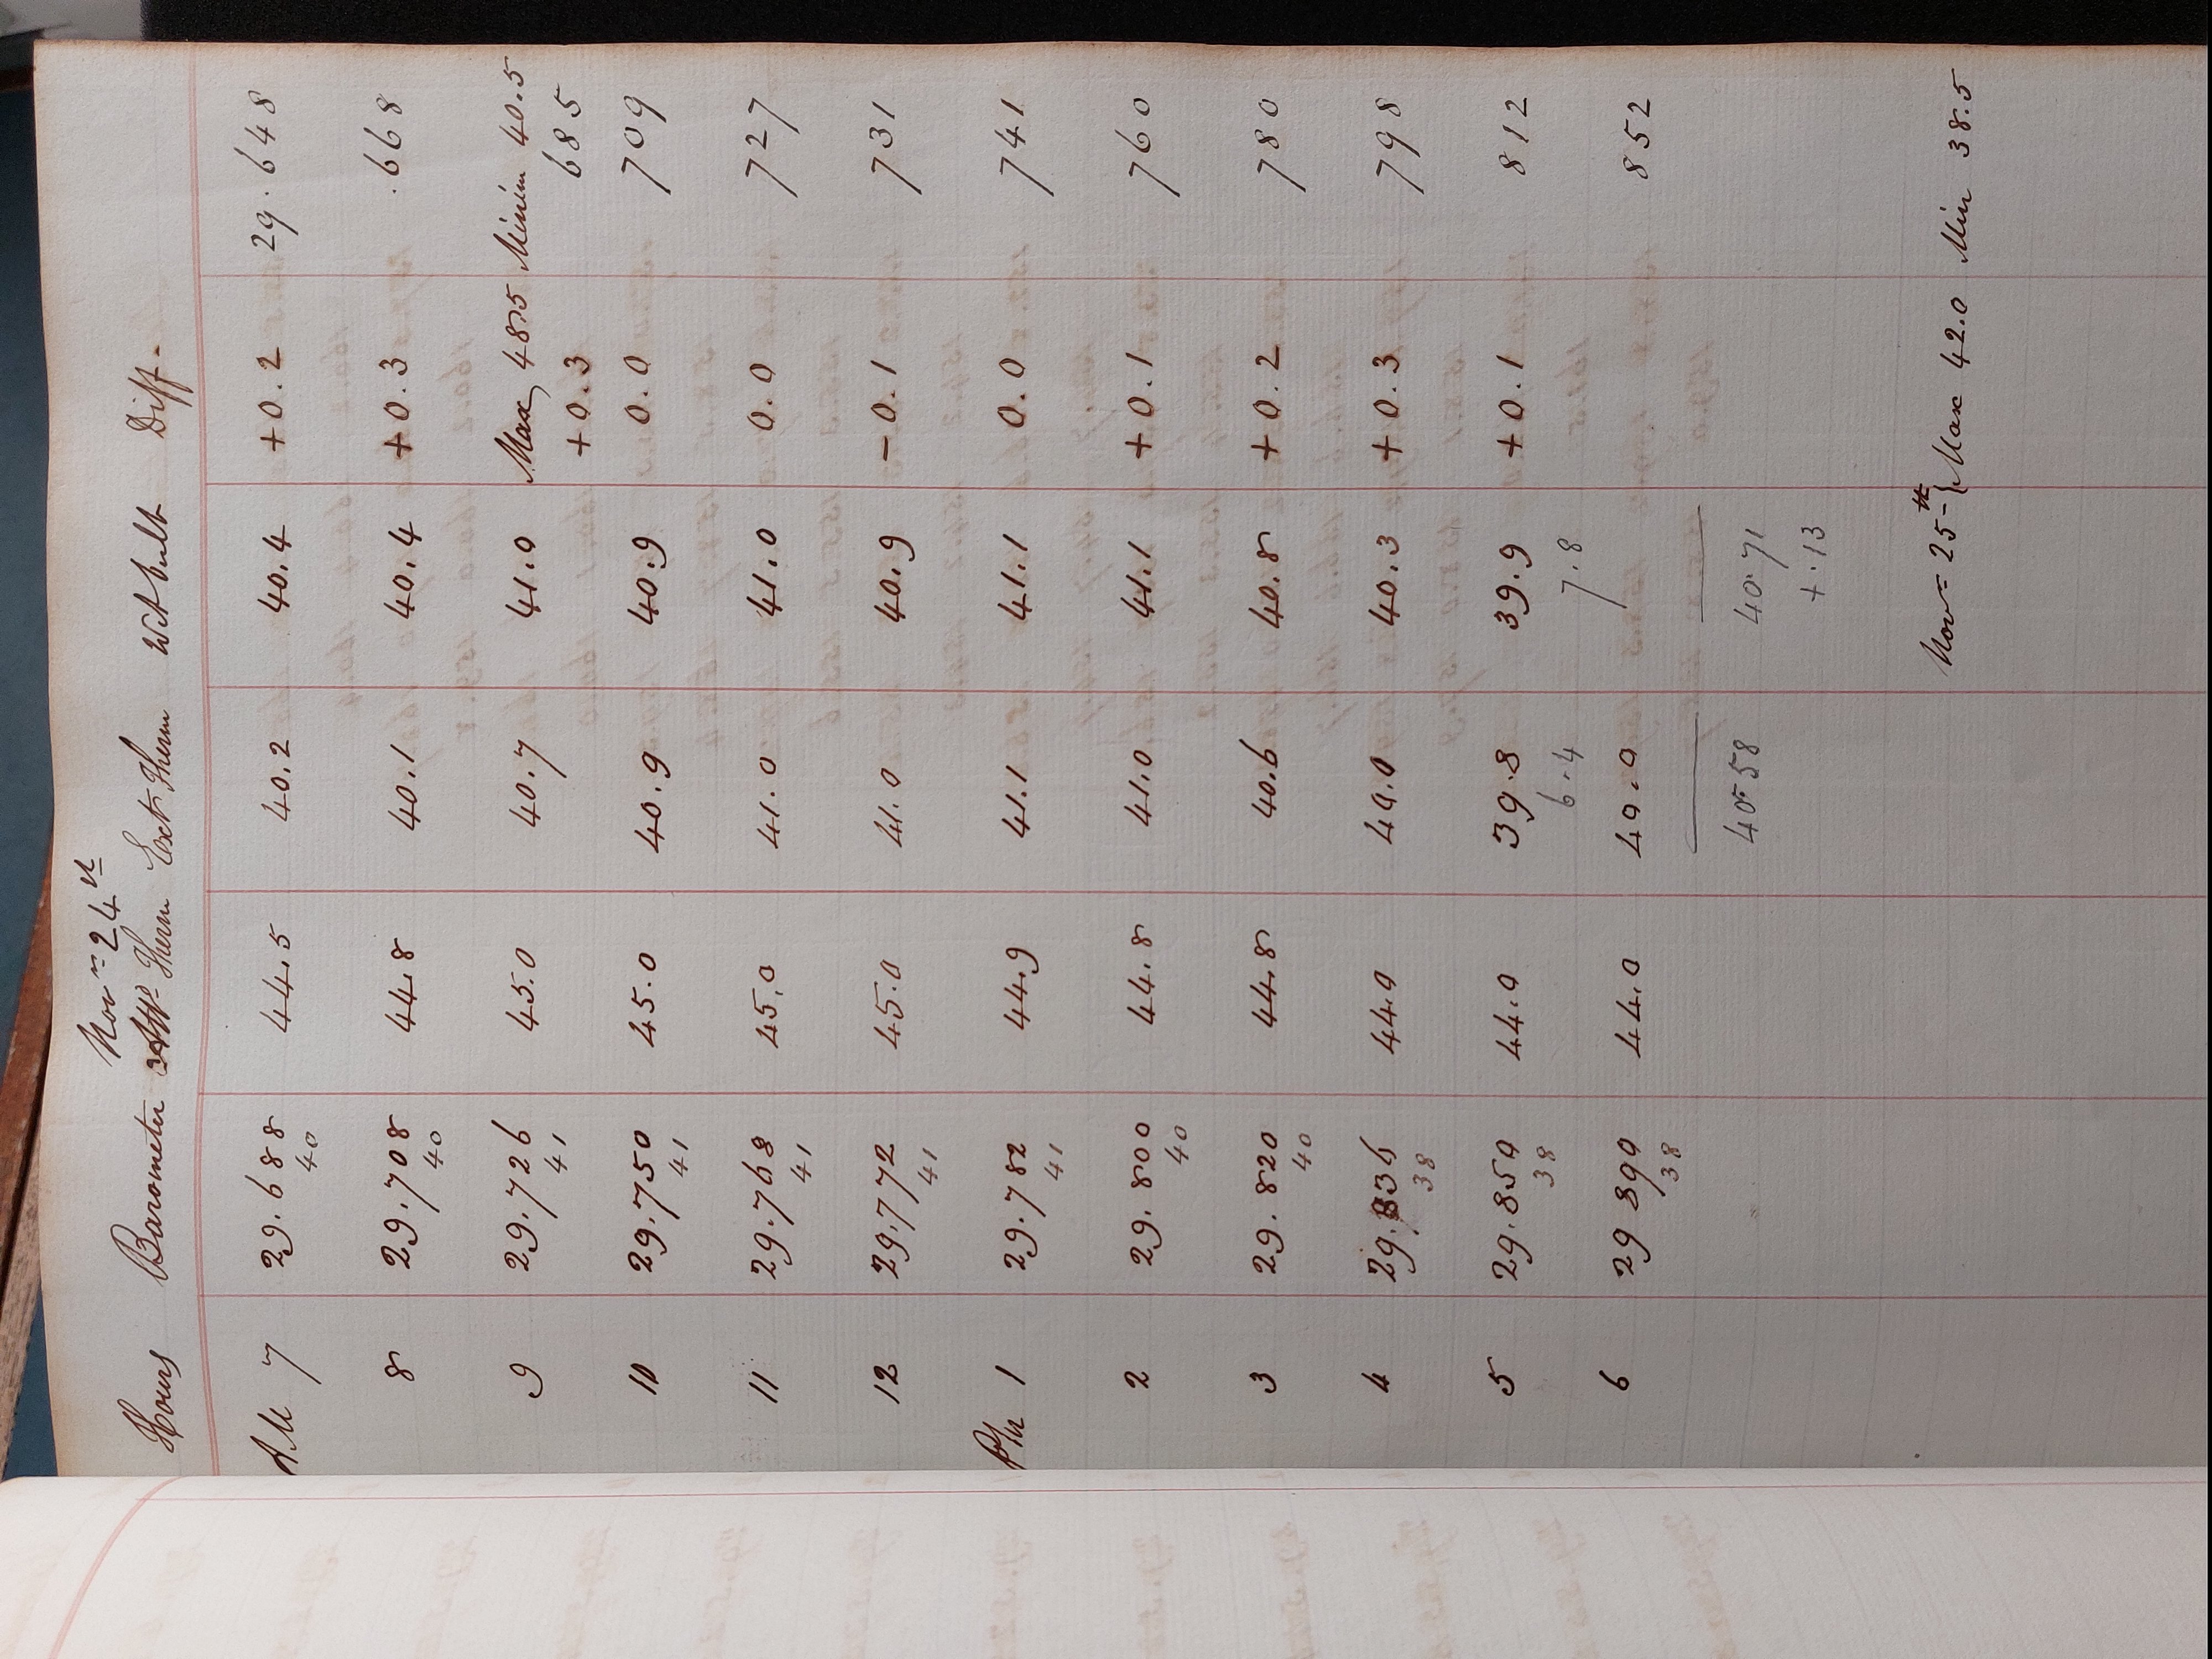 Nov.r 24th
Hours Barometer Attd Therm Ext Therm Wet bulb Diff.
AM 7 29.688 44.5 40.2 40.4 +0.2 29.648
40
8 29.708 44.8 40.1 40.4 +0.3 .668
40
9 29.726 45.0 40.7 41.0 Max 48.5 Minim 40.5
41 +0.3 685
10 29.750 45.0 40.9 40.9 0.0 709
41
11 29.768 45.0 41.0 41.0 0.0 727
41
12 29.772 45.0 41.0 40.9 -0.1 731
41
PM 1 29.782 44.9 41.1 41.1 0.0 741
41
2 29.800 44.8 41.0 41.1 +0.1 760
40
3 29.820 44.8 40.6 40.8 +0.2 780
40
4 29.836 44.0 40.0 40.3 +0.3 798
38
5 29.850 44.0 39.8 39.9 +0.1 812
38 6.4 7.8
6 29 890 44.0 40.0 852
38
40.58 40.71
+.13
Novr 25th } Max 42.0 Min 38.5